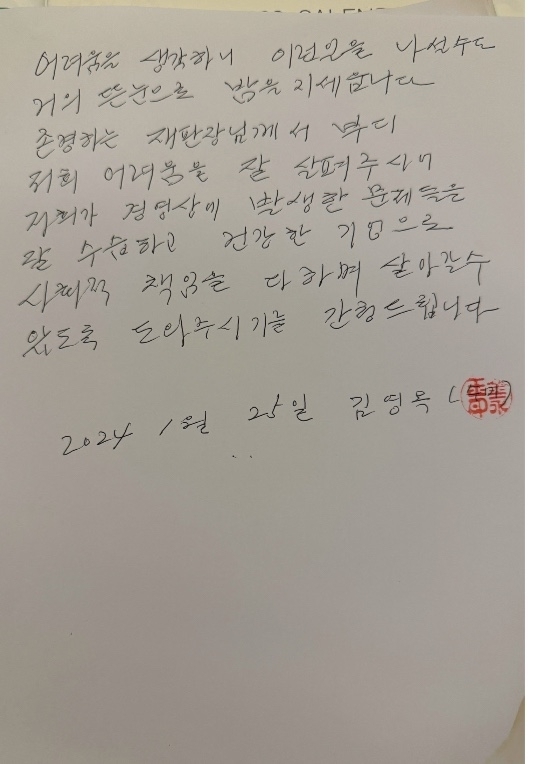 어려움을 생각하니 나설수도
거의 뜬눈으로 밤을 지세웁니다
존경하는 재판장님께서 부디
저희 어려움을 잘 살펴주시어
저희가 경영상에 발생한 문제들을
잘 수습하고 건강한 기업으로
사회적 책임을 다하며 살아갈수
있도록 도와주시기를 간청드립니다
2024 1월 25일 김영옥